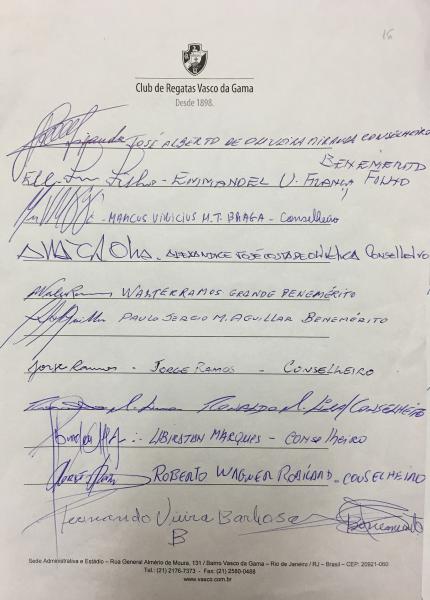 16
Club de Regatas Vasco da Gama
Desde 1898.
JOSÉ ALBERTO DE OLIVEIRA MIRANDA CONSELHEIRO
BENEMÉRITO
- EMMANOEL U. FRANÇA FILHO
- MARCUS VINICIUS M.T. BRAGA - Conselheiro
ALEXANDRE JOSÉ COSTA DE OLIVEIRA CONSELHEIRO
WALTER RAMOS GRANDE BENEMÉRITO
PAULO SERGIO M. AGUILLAR BENEMÉRITO
Jorge Ramos - JORGE RAMOS - CONSELHEIRO
CONSELHEIRO
UBIRATAN MARQUES - CONSELHEIRO
ROBERTO WAGNER - CONSELHEIRO
Fernando Vieira Barbosa Benemérito
B
Sede Administrativa e Estádio – Rua General Almério de Moura, 131 / Bairro Vasco da Gama – Rio de Janeiro / RJ – Brasil – CEP: 20921-060
Tel.: (21) 2176-7373 - Fax: (21) 2580-0488
www.vasco.com.br